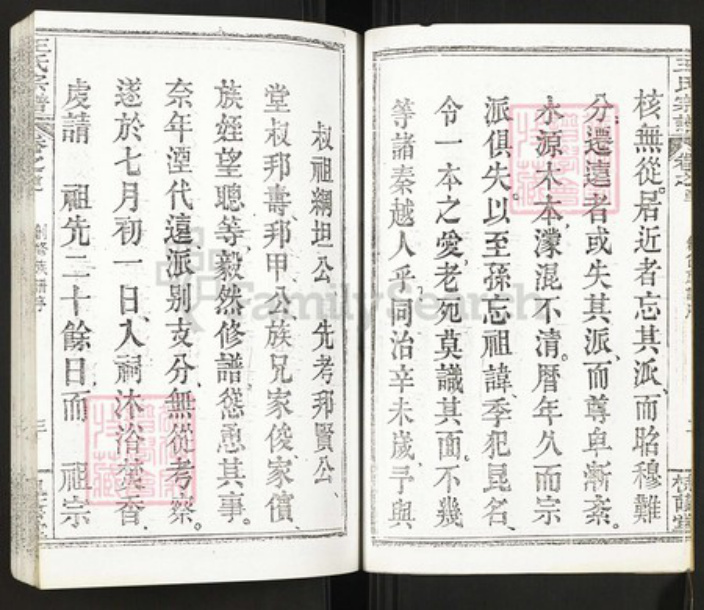 王氏宗譜
核無從。居近者忘其派、而昭穆難
分。遷遠者或失其派、而尊卑漸紊。
水源木本、濛混不清。曆年久而宗
派俱失。以至孫忘祖諱、季犯昆名、
令一本之愛、老死莫識其面。不幾
等諸秦越人乎、同治辛未歲、予與
叔祖綱坦公　先考邦賢公、
堂叔邦壽邦甲公、族兄家俊家儐、
族姪望聰等、毅然修譜、慫恿其事。
奈年湮代遠、派別支分、無從考察。
遂於七月初一日、入祠沐浴焚香、
虔請　祖先二十餘日、而　祖宗
王氏宗譜
三
FamilySearch